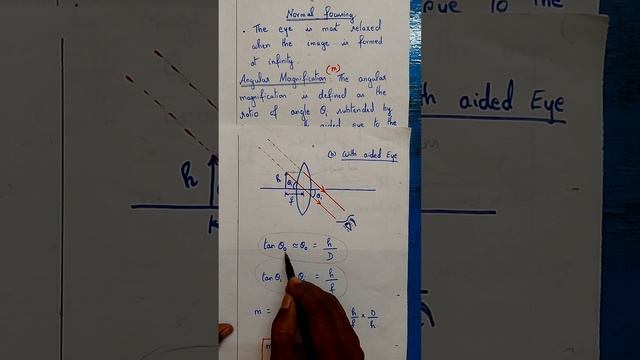 Normal focusing
• The eye is most relaxed
when the image is formed
at infinity.
(m)
Angular Magnification: The angular
magnification is defined as the
ratio of angle θi subtended by
aided eye to the
(b) With aided Eye
h
θi
θi
f
tan θo ≈ θo = h/D
tan θi θi = h/f
m = h/f × D/h
m
eye to the
h
th aided Eye